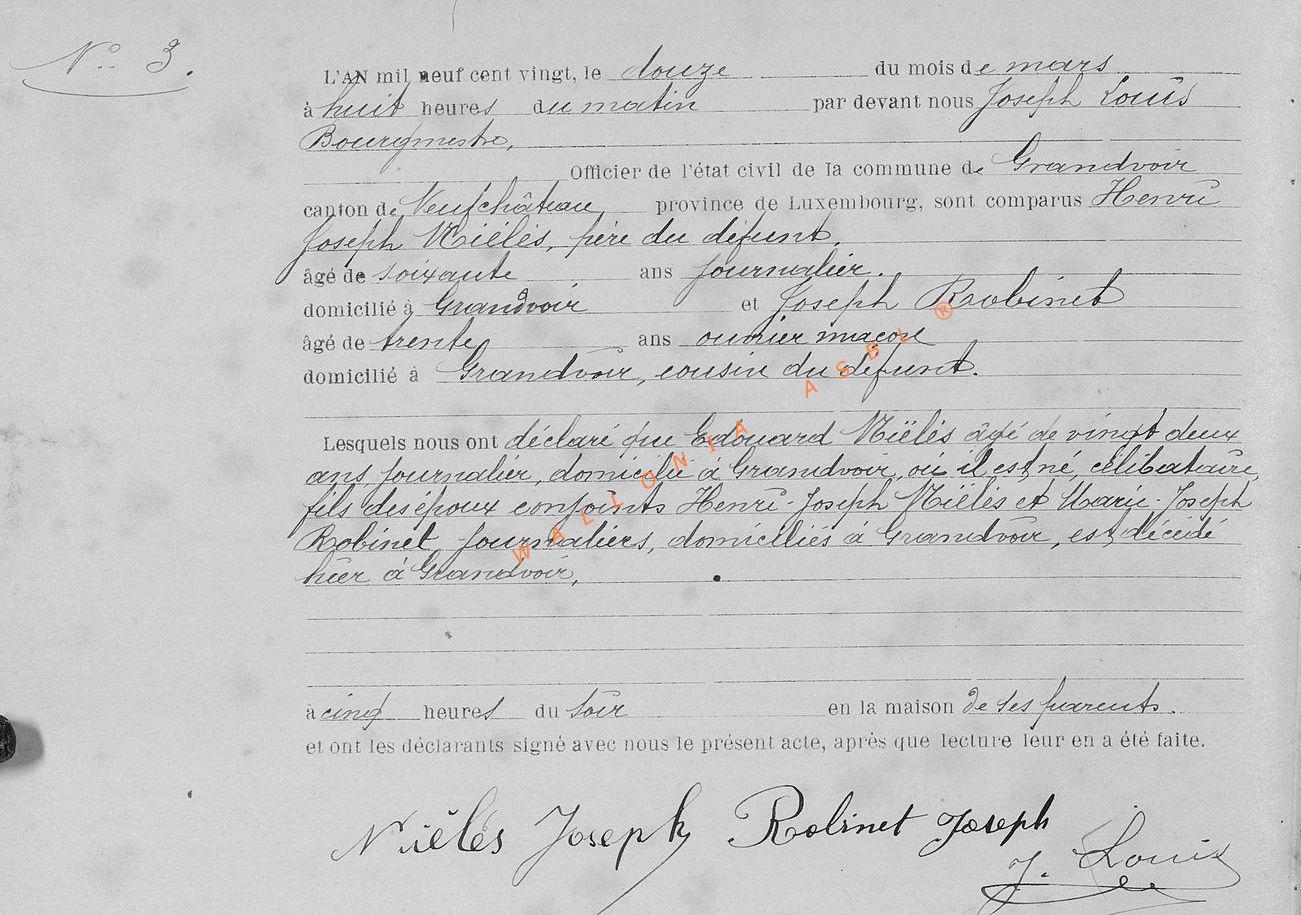 N° 3.
L'AN mil neuf cent vingt, le douze du mois de mars
à huit heures du matin par devant nous Joseph Louis
Bourgmestre,
Officier de l'état civil de la commune de Grandvoir
canton de Neufchâteau province de Luxembourg, sont comparus Henri
Joseph Niëlès, père du défunt,
âgé de soixante ans journalier.
domicilié à Grandvoir et Joseph Robinet
âgé de trente ans ouvrier maçon
domicilié à Grandvoir, cousin du défunt.
Lesquels nous ont déclaré que Edouard Niëlès âgé de vingt deux
ans, journalier, domicilié à Grandvoir, où il est né, célibataire,
fils des époux conjoints Henri-Joseph Niëlès et Marie-Joseph
Robinet journaliers, domiciliés à Grandvoir, est décédé
hier à Grandvoir,
à cinq heures du soir en la maison de ses parents.
et ont les déclarants signé avec nous le présent acte, après que lecture leur en a été faite.
Niëlès Joseph Robinet Joseph
J. Louis
WALLONIA ASBL ®